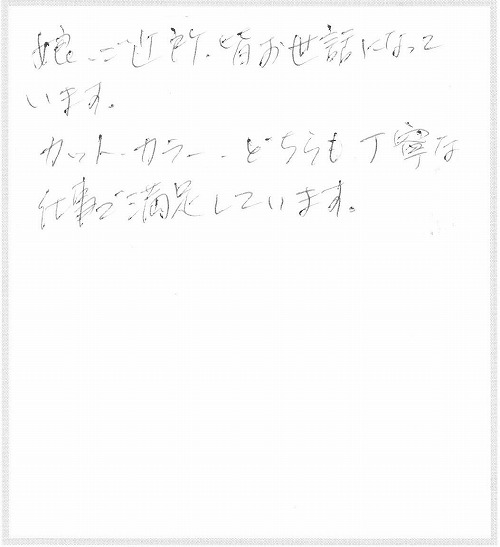 娘、ご近所、皆お世話になって
います。
カット、カラー、どちらも丁寧な
仕事で満足しています。